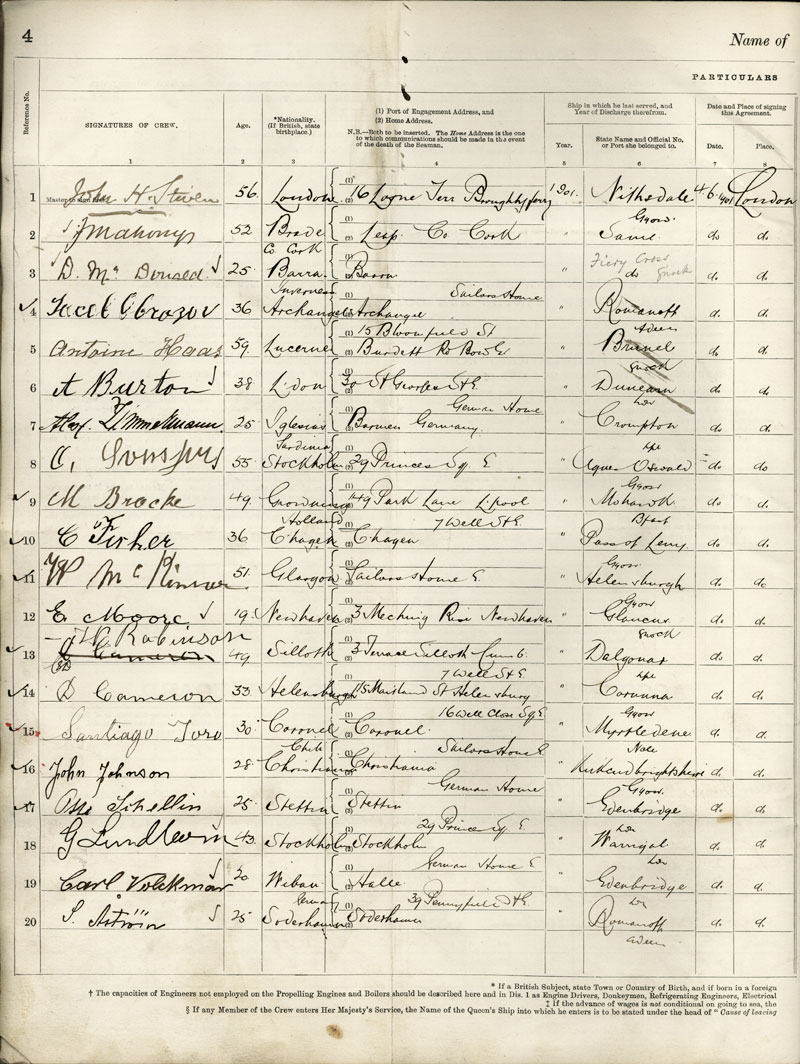 4
Name of
PARTICULARS
Reference No.
SIGNATURES OF CREW.
Age.
*Nationality. (If British, state birthplace.)
(1) Port of Engagement Address, and
(2) Home Address.
N.B.—Both to be inserted. The Home Address is the one to which communications should be made in the event of the death of the Seaman.
Ship in which he last served, and Year of Discharge therefrom.
Year.
State Name and Official No. or Port she belonged to.
Date and Place of signing this Agreement.
Date.
Place.
1 2 3 4 5 6 7 8
1 John H. Stiven 56 London 16 Terr 1901 Nithsdale 4.6.1901 London
Glgow.
2 J Mahony 52 Leap Co Cork " Same do do.
Co Cork Fiery Cross
3 D. Mc Donald 25 Barra Barra " do Gnock do. do.
Inverness Sailors Home
4 36 Archangel Archangel " Romanoff do. do.
15 St Aden
5 Antoine Haas 59 Lucerne Burdett Rd Bow E " Brunel do. do.
Gnock
6 A Burton 38 London 30 St Georges St E. " Duncarn do. do.
German Home Ldn
7 Alex. Zimmelmann 25 Iglesias Barmen Germany. " Crompton do. do.
Sardinia Lpl
8 55 Stockholm 29 Princes Sq. E " Agnes Oswald do do
Glgow
9 M Bracke 49 Groningen 149 Park Lane L.pool " Mohawk do. do.
Holland 7 Well St E. Bfast
10 C Fisher 36 Chagen " Pass of Leny. do do.
Glgow
11 W McKinnon 51 Glasgow Sailors Home E. " Helensburgh do do
Glgow
12 E. Moore 19 Newhaven 3 Meeching Rise Newhaven " Glaucus do. do.
J W Robinson Gnock
13 Cameron 49 Silloth 3 Terrace Silloth Cumb. " Dalgonar do. do.
7 Well St E Lpl
14 D Cameron 33 Helensburgh 115 Maitland St Helensburg " Corunna do. do.
16 Well Close Sq E Glgow
15 Santiago Toro 30 Coronel Coronel " Myrtledene do. do.
Chili Sailors Home E.
16 John Johnson 28 Christiania Christiania " Kirkcudbrightshire do. do.
German Home Glgow.
17 Otto Schellin 25 Stettin Stettin " Edenbridge do. do.
29 Princes Sq. E Ldn
18 G Lundlewin 43 Stockholm Stockholm " Warrigal do. do.
German Home E Ldn
19 Carl Volckmar 20 Halle " Edenbridge do. do.
German 39 Pennyfield E. Ldn
20 S. Aström 25 Soderhamn Soderhamn " Romanoff do. do.
Adeen
* If a British Subject, state Town or Country of Birth, and if born in a foreign
† The capacities of Engineers not employed on the Propelling Engines and Boilers should be described here and in Dis. 1 as Engine Drivers, Donkeymen, Refrigerating Engineers, Electrical
‡ If the advance of wages is not conditional on going to sea, the
§ If any Member of the Crew enters Her Majesty's Service, the Name of the Queen's Ship into which he enters is to be stated under the head of "Cause of leaving